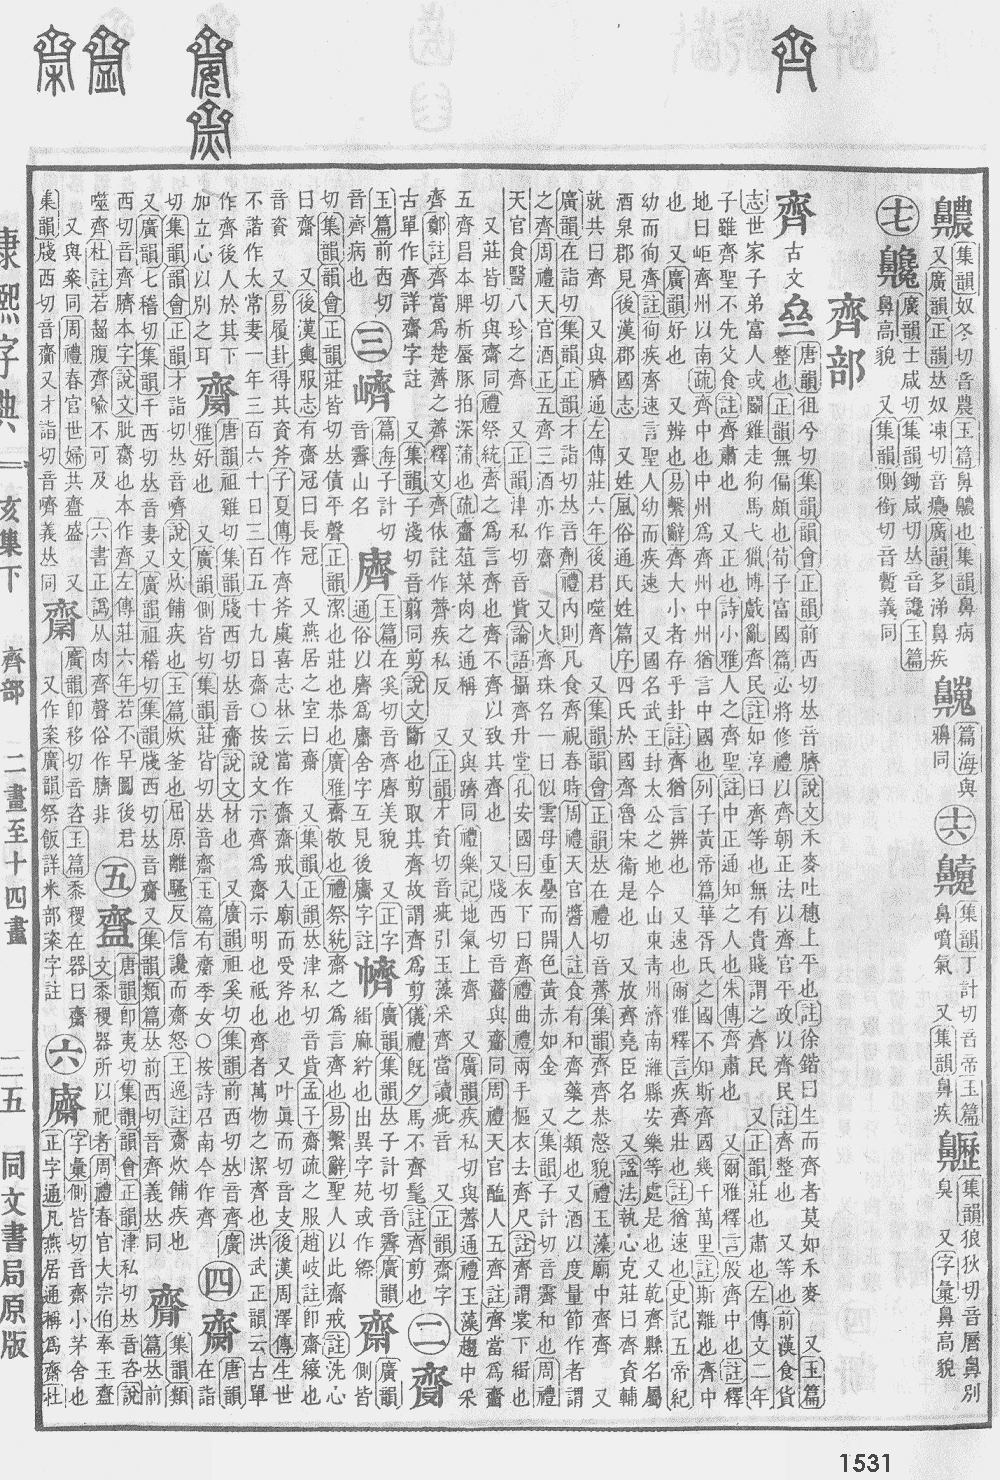 齈 集韻奴冬切音農玉篇鼻齈也集韻鼻病
又廣韻正韻𠀤奴凍切音癑廣韻多涕鼻疾
篇海與
集韻丁計切音帝玉篇
鼻噴氣 又集韻鼻疾
集韻狼狄切音曆鼻別
臭 又字彙鼻高貌
廣韻士咸切集韻鋤咸切𠀤音讒玉篇
鼻高貌 又集韻側銜切音暫義同
齊部
齊 古文
唐韻徂兮切集韻韻會正韻前西切𠀤音臍說文禾麥吐穗上平也註徐鍇曰生而齊者莫如禾麥 又玉篇
整也正韻無偏頗也荀子富國篇必將修禮以齊朝正法以齊官平政以齊民註齊整也 又等也前漢食貨
志世家子弟富人或鬭雞走狗馬弋獵博戲亂齊民註如淳曰齊等也無有貴賤謂之齊民 又正韻莊也肅也左傳文二年
子雖齊聖不先父食註齊肅也 又正也詩小雅人之齊聖註中正通知之人也朱傳齊肅也 又爾雅釋言殷齊中也註釋
地曰岠齊州以南疏齊中也中州爲齊州中州猶言中國也列子黃帝篇華胥氏之國不知斯齊國幾千萬里註斯離也齊中
也 又廣韻好也 又辨也易繫辭齊大小者存乎卦註齊猶言辨也 又速也爾雅釋言疾齊壯也註猶速也史記五帝紀
幼而徇齊註徇疾齊速言聖人幼而疾速 又國名武王封太公之地今山東靑州濟南濰縣安樂等處是也又乾齊縣名屬
酒泉郡見後漢郡國志 又姓風俗通氏姓篇序四氏於國齊魯宋衞是也 又放齊堯臣名 又諡法執心克莊曰齊資輔
就共曰齊 又與臍通左傳莊六年後君噬齊 又集韻韻會正韻𠀤在禮切音薺集韻齊齊恭慤貌禮玉藻廟中齊齊 又
廣韻在詣切集韻正韻才詣切𠀤音劑禮內則凡食齊視春時周禮天官醬人註食有和齊藥之類也又酒以度量節作者謂
之齊周禮天官酒正五齊三酒亦作齍 又火齊珠名一曰似雲母重疊而開色黃赤如金 又集韻子計切音霽和也周禮
天官食醫八珍之齊 又正韻津私切音貲論語攝齊升堂孔安國曰衣下曰齊禮曲禮兩手摳衣去齊尺註齊謂裳下緝也
又莊皆切與齋同禮祭統齊之爲言齊也齊不齊以致其齊也 又牋西切音齏與齏同周禮天官醢人五齊註齊當爲齏
五齊昌本脾析蜃豚拍深蒲也疏齏菹菜肉之通稱 又與躋同禮樂記地氣上齊 又廣韻疾私切與薺通禮玉藻趨中采
齊鄭註齊當爲楚薺之薺釋文齊依註作薺疾私反 又正韻才資切音疵引玉藻采齊當讀疵音 又正韻齊字
古單作齊詳齋字註 又集韻子淺切音翦同剪說文斷也剪取其齊故謂齊爲剪儀禮旣夕馬不齊髦註齊剪也
二
玉篇前西切
音齊病也
三
篇海子計切
音霽山名
玉篇在奚切音齊㢜美貌 又正字
通俗以㢜爲齎舍字互見後齎字註
廣韻集韻𠀤子計切音霽廣韻
緝麻紵也出異字苑或作縩
齋 廣韻側皆
切集韻韻會正韻莊皆切𠀤債平聲正韻潔也莊也恭也廣雅齋敬也禮祭統齋之爲言齊也易繫辭聖人以此齋戒註洗心
曰齋 又後漢輿服志有齋冠曰長冠 又燕居之室曰齋 又集韻正韻𠀤津私切音貲孟子齋疏之服趙岐註卽齋縗也
音資 又易履卦得其資斧子夏傳作齊斧虞喜志林云當作齋齋戒入廟而受斧也 又叶眞而切音支後漢周澤傳生世
不諧作太常妻一年三百六十日三百五十九日齋○按說文示齊爲齋示明也祗也齊者萬物之潔齊也洪武正韻云古單
作齊後人於其下
加立心以別之耳
四
唐韻祖雞切集韻牋西切𠀤音齏說文材也 又廣韻祖奚切集韻前西切𠀤音齊廣
雅好也 又廣韻側皆切集韻莊皆切𠀤音齋玉篇有齌季女○按詩召南今作齊
唐韻在詣
切集韻韻會正韻才詣切𠀤音齊說文炊餔疾也玉篇炊釜也屈原離騷反信讒而齌怒王逸註齌炊餔疾也
又廣韻七稽切集韻千西切𠀤音妻又廣韻祖稽切集韻牋西切𠀤音齏又集韻類篇𠀤前西切音齊義𠀤同
集韻類
篇𠀤前
西切音齊臍本字說文肶齎也本作齊左傳莊六年若不早圖後君
噬齊杜註若齧腹齊喻不可及 六書正譌从肉齊聲俗作臍非
五
齍 唐韻卽夷切集韻韻會正韻津私切𠀤音咨說
文黍稷器所以祀者周禮春官大宗伯奉玉齍
又與粢同周禮春官世婦共齍盛 又
集韻牋西切音齎又才詣切音嚌義𠀤同
廣韻卽移切音咨玉篇黍稷在器曰齍
又作粢廣韻祭飯詳米部粢字註
六
字彙側皆切音齋小茅舍也
正字通凡燕居通稱爲齋社
康熙字典 亥集下 齊部 二畫至十四畫 二五 同文書局原版
1531